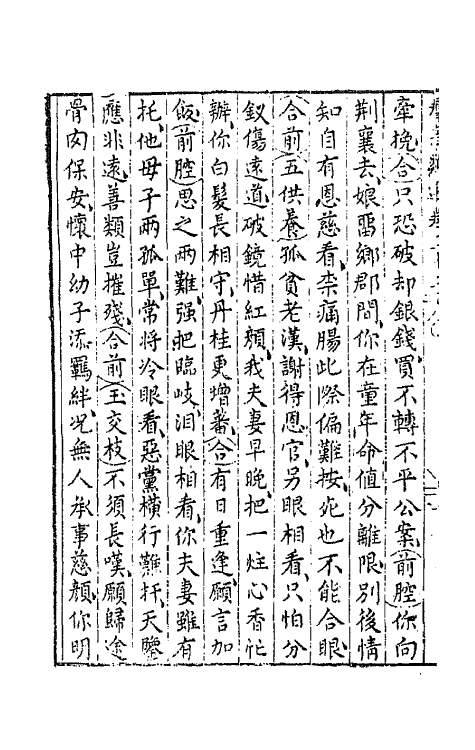 牽挽(合)只恐破却銀錢買不轉不平公案(前腔)你向
荆襄去娘畱鄉郡間你在童年命值分離限别後情
知自有恩慈看柰痛腸此際偏難按死也不能合眼
(合前)(五供養)孤貧老漢謝得恩官另眼相看只怕分
釵傷遠道破鏡惜紅顔我夫妻早晚把一炷心香忙
辦你白髮長相守丹桂更增蕃(合)有日重逢願言加
飯(前腔)思之两難强把臨岐泪眼相看你夫妻雖有
托他母子兩孤單常將冷眼看惡黨橫行難扞天鑒
應非遠善類豈摧殘(合前)(玉交枝)不須長嘆願歸途
骨肉保安懷中幼子添羈絆况無人承事慈顔你明